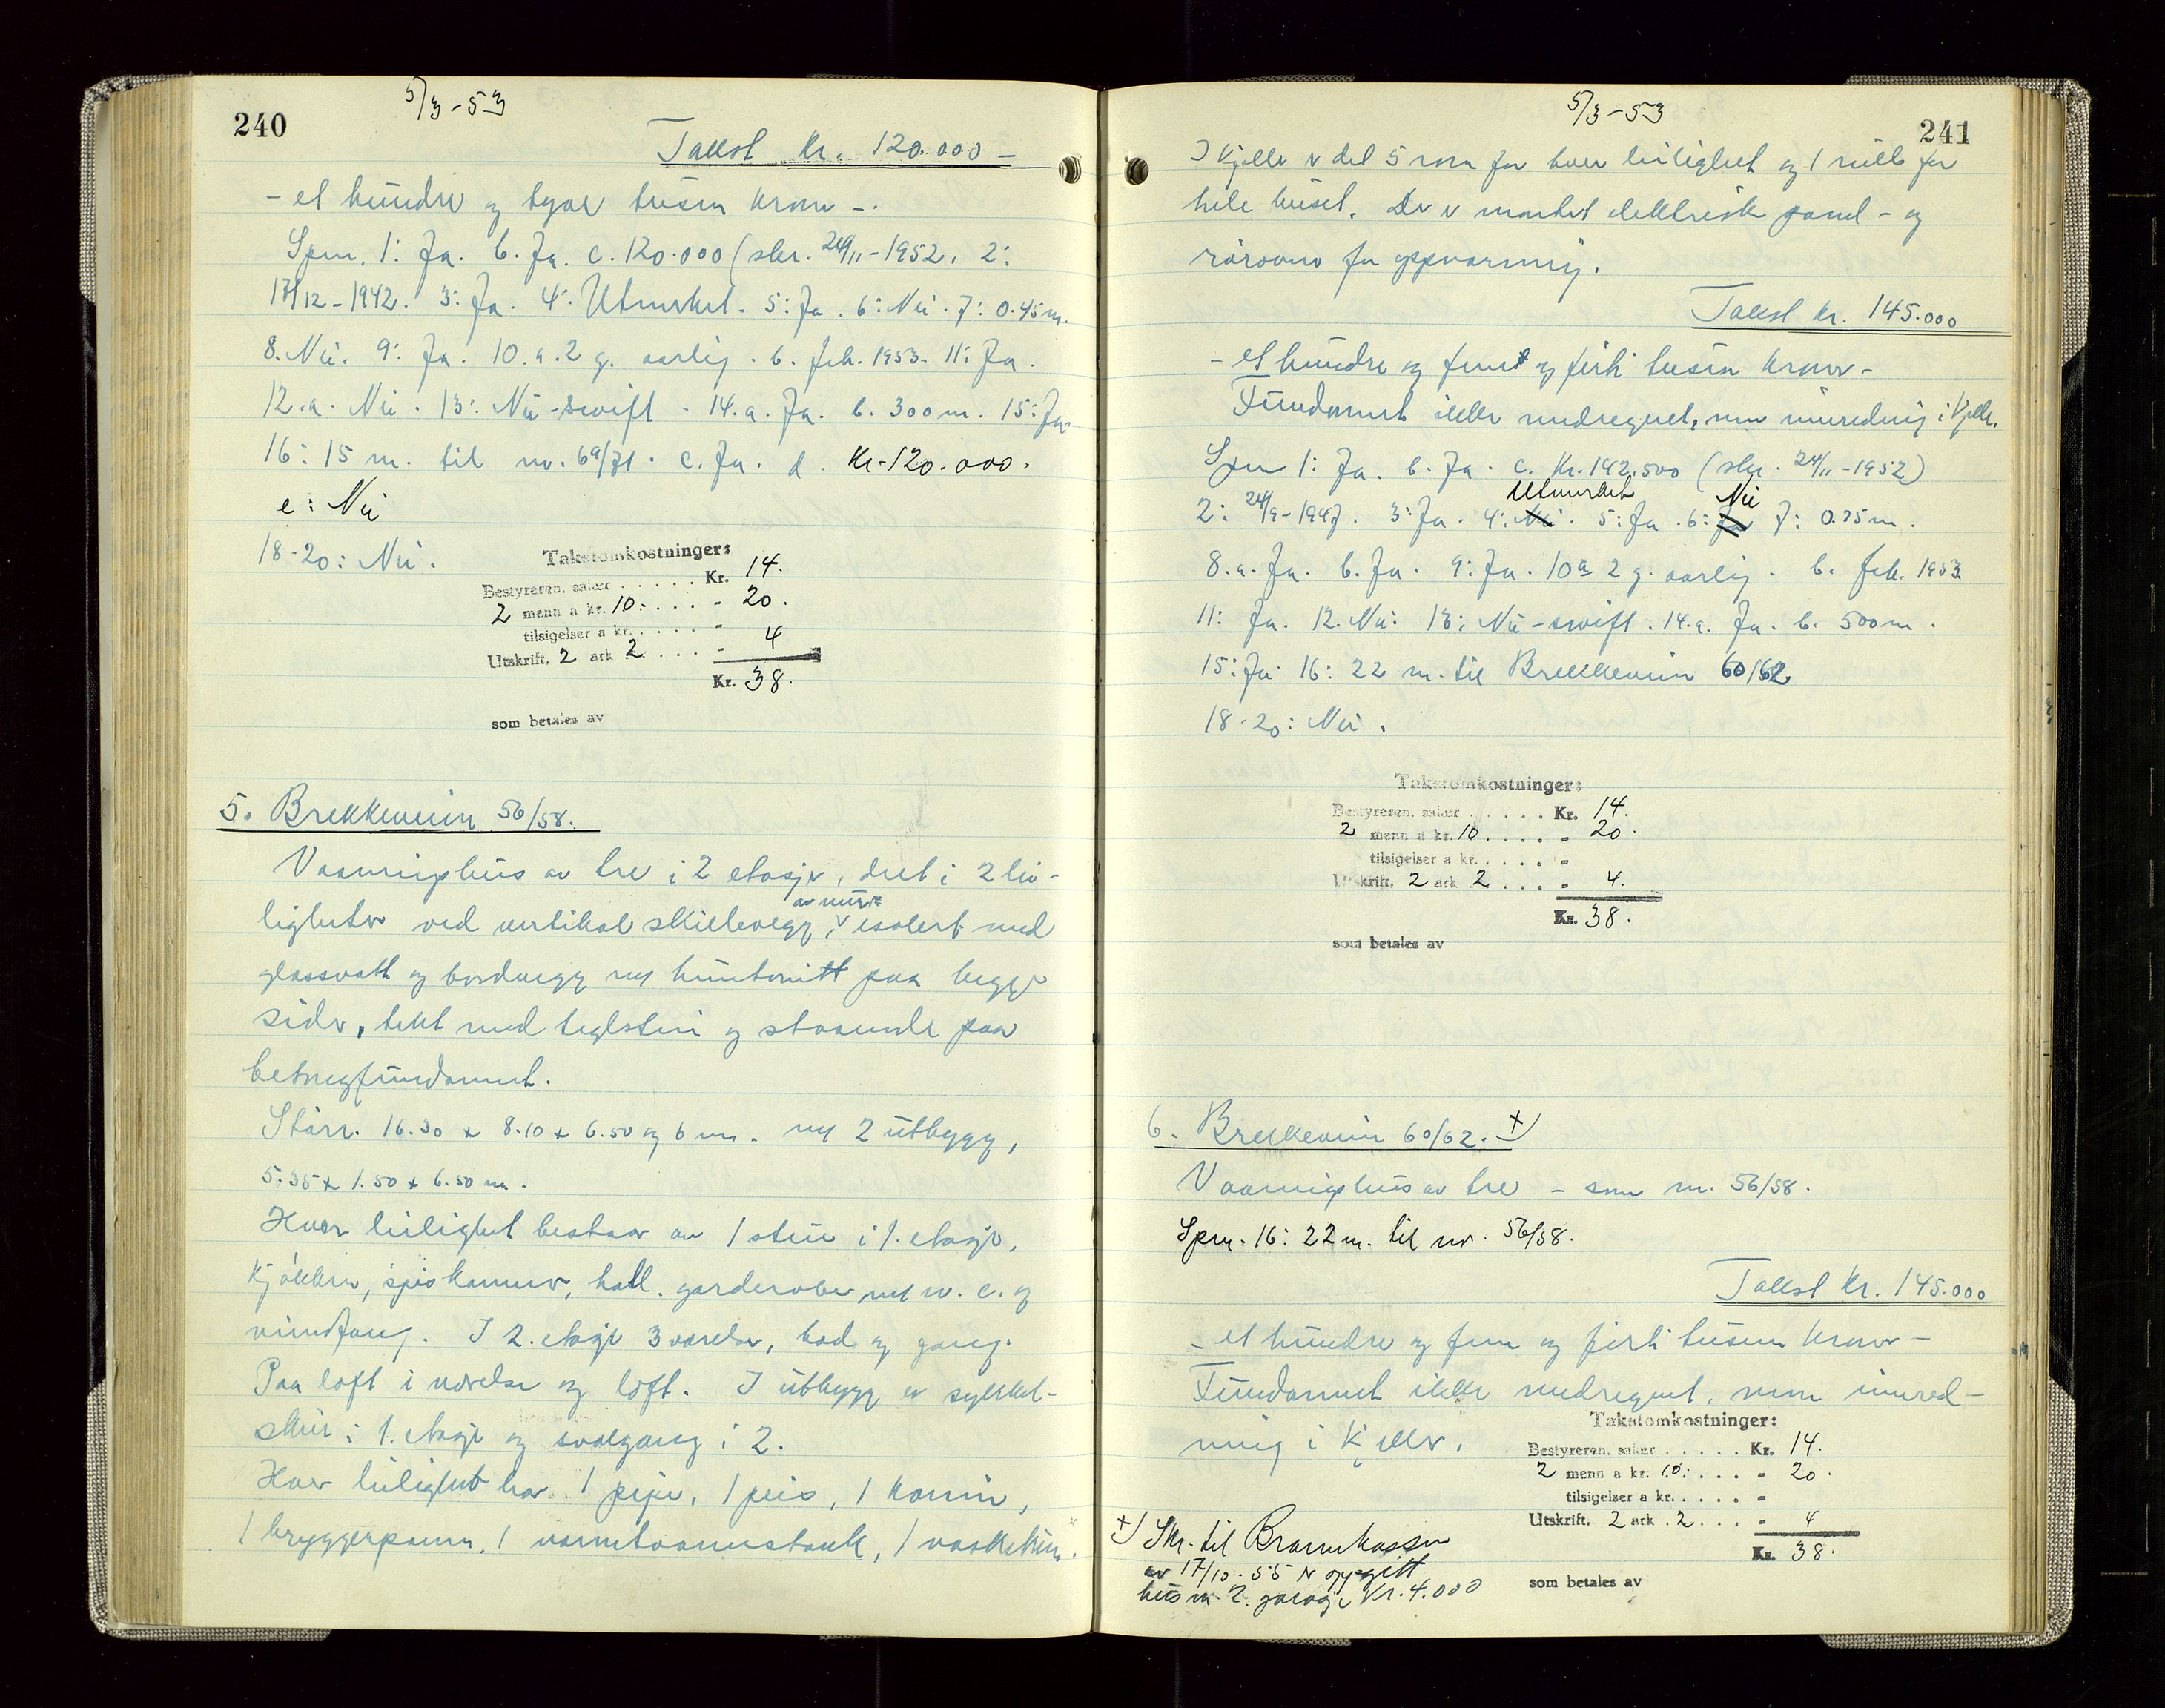 240
5/3-53
Takst kr. 120.000 –
– et hundre og tyve tusen kroner –.
Spm. 1: Ja. b. Ja. c. 120.000 (skr. 24/11-1952. 2:
17/12-1942. 3: Ja. 4: Utmerket. 5: Ja. 6: Nei. 7: 0.45 m.
8. Nei. 9: Ja. 10.a. 2 g. aarlig. b. feb. 1953. 11: Ja.
12.a. Nei. 13: Nu-swift. 14.a. Ja. b. 300 m. 15: Ja
16: 15 m. til nr. 69/71. c. Ja. d. Kr. 120.000.
e: Nei
18-20: Nei.
Takstomkostninger:
Bestyreren, saker ..... Kr. 14.
2 menn a kr. 10. .... - 20.
tilsigelser a kr. ..... -
Utskrift, 2 ark 2. .... - 4
Kr. 38.
som betales av
5. Brekkeveien 56/58.
Vaaningshus av tre i 2 etasjer, delt i 2 lei-
av mur
ligheter ved vertikal skillevegg, v isolert med
glassvatt og bordvegg med huntonitt paa begge
sider, tekt med teglsten og staaende paa
betongfundament.
Större. 16.30 x 8.10 x 6.50 og 6 m. med 2 utbygg,
5.35 x 1.50 x 6.50 m.
Hver leilighet bestaar av 1 stue i 1. etasje,
kjökken, spiskammer, hall, garderobe med w.c. og
vindfang. I 2. etasje 3 værelser, bad og gang.
Paa loft 1 værelse og loft. I utbygg er sykkel-
skur i 1. etasje og svalgang i 2.
Hver leilighet har 1 pipe, 1 peis, 1 kamin,
1 bryggerpanne, 1 varmtvannstank, 1 vaskekum.
241
5/3-53
I kjeller er det 5 rom for hver leilighet og 1 rulle for
hele huset. Der er montert elektrisk panel- og
rörovner for oppvarming.
Takst kr. 145.000
– et hundre og fem og förti tusen kroner –
Fundament ikke medregnet, men innredning i kjeller.
Spm 1: Ja. b. Ja. c. Kr. 142.500 (skr. 24/11-1952)
Utmerket Nei
2: 24/9-1947. 3: Ja. 4: Nei. 5: Ja. 6: Ja 7: 0.75 m.
8.a. Ja. b. Ja. 9: Ja. 10a 2 g. aarlig. b. feb. 1953
11: Ja. 12. Nei. 13: Nu-swift. 14.a. Ja. b. 500 m.
15: Ja. 16: 22 m. til Brekkeveien 60/62
18-20: Nei.
Takstomkostninger:
Bestyreren, saker ..... Kr. 14.
2 menn a kr. 10 .... - 20.
tilsigelser a kr. ..... -
Utskrift, 2 ark 2 .... - 4.
Kr. 38.
som betales av
6. Brekkeveien 60/62. x)
Vaaningshus av tre – som nr. 56/58.
Spm. 16: 22 m. til nr. 56/58.
Takst kr. 145.000
– et hundre og fem og förti tusen kroner –
Fundament ikke medregnet, men innred-
ning i kjeller.
Takstomkostninger:
Bestyreren, saker ..... Kr. 14.
2 menn a kr. 10. .... - 20.
tilsigelser a kr. ..... -
Utskrift, 2 ark 2 .... - 4
Kr. 38.
som betales av
x) Skr. til Brannkassen
av 17/10-55 er oppgitt
hus m. 2 garasje Kr. 4.000